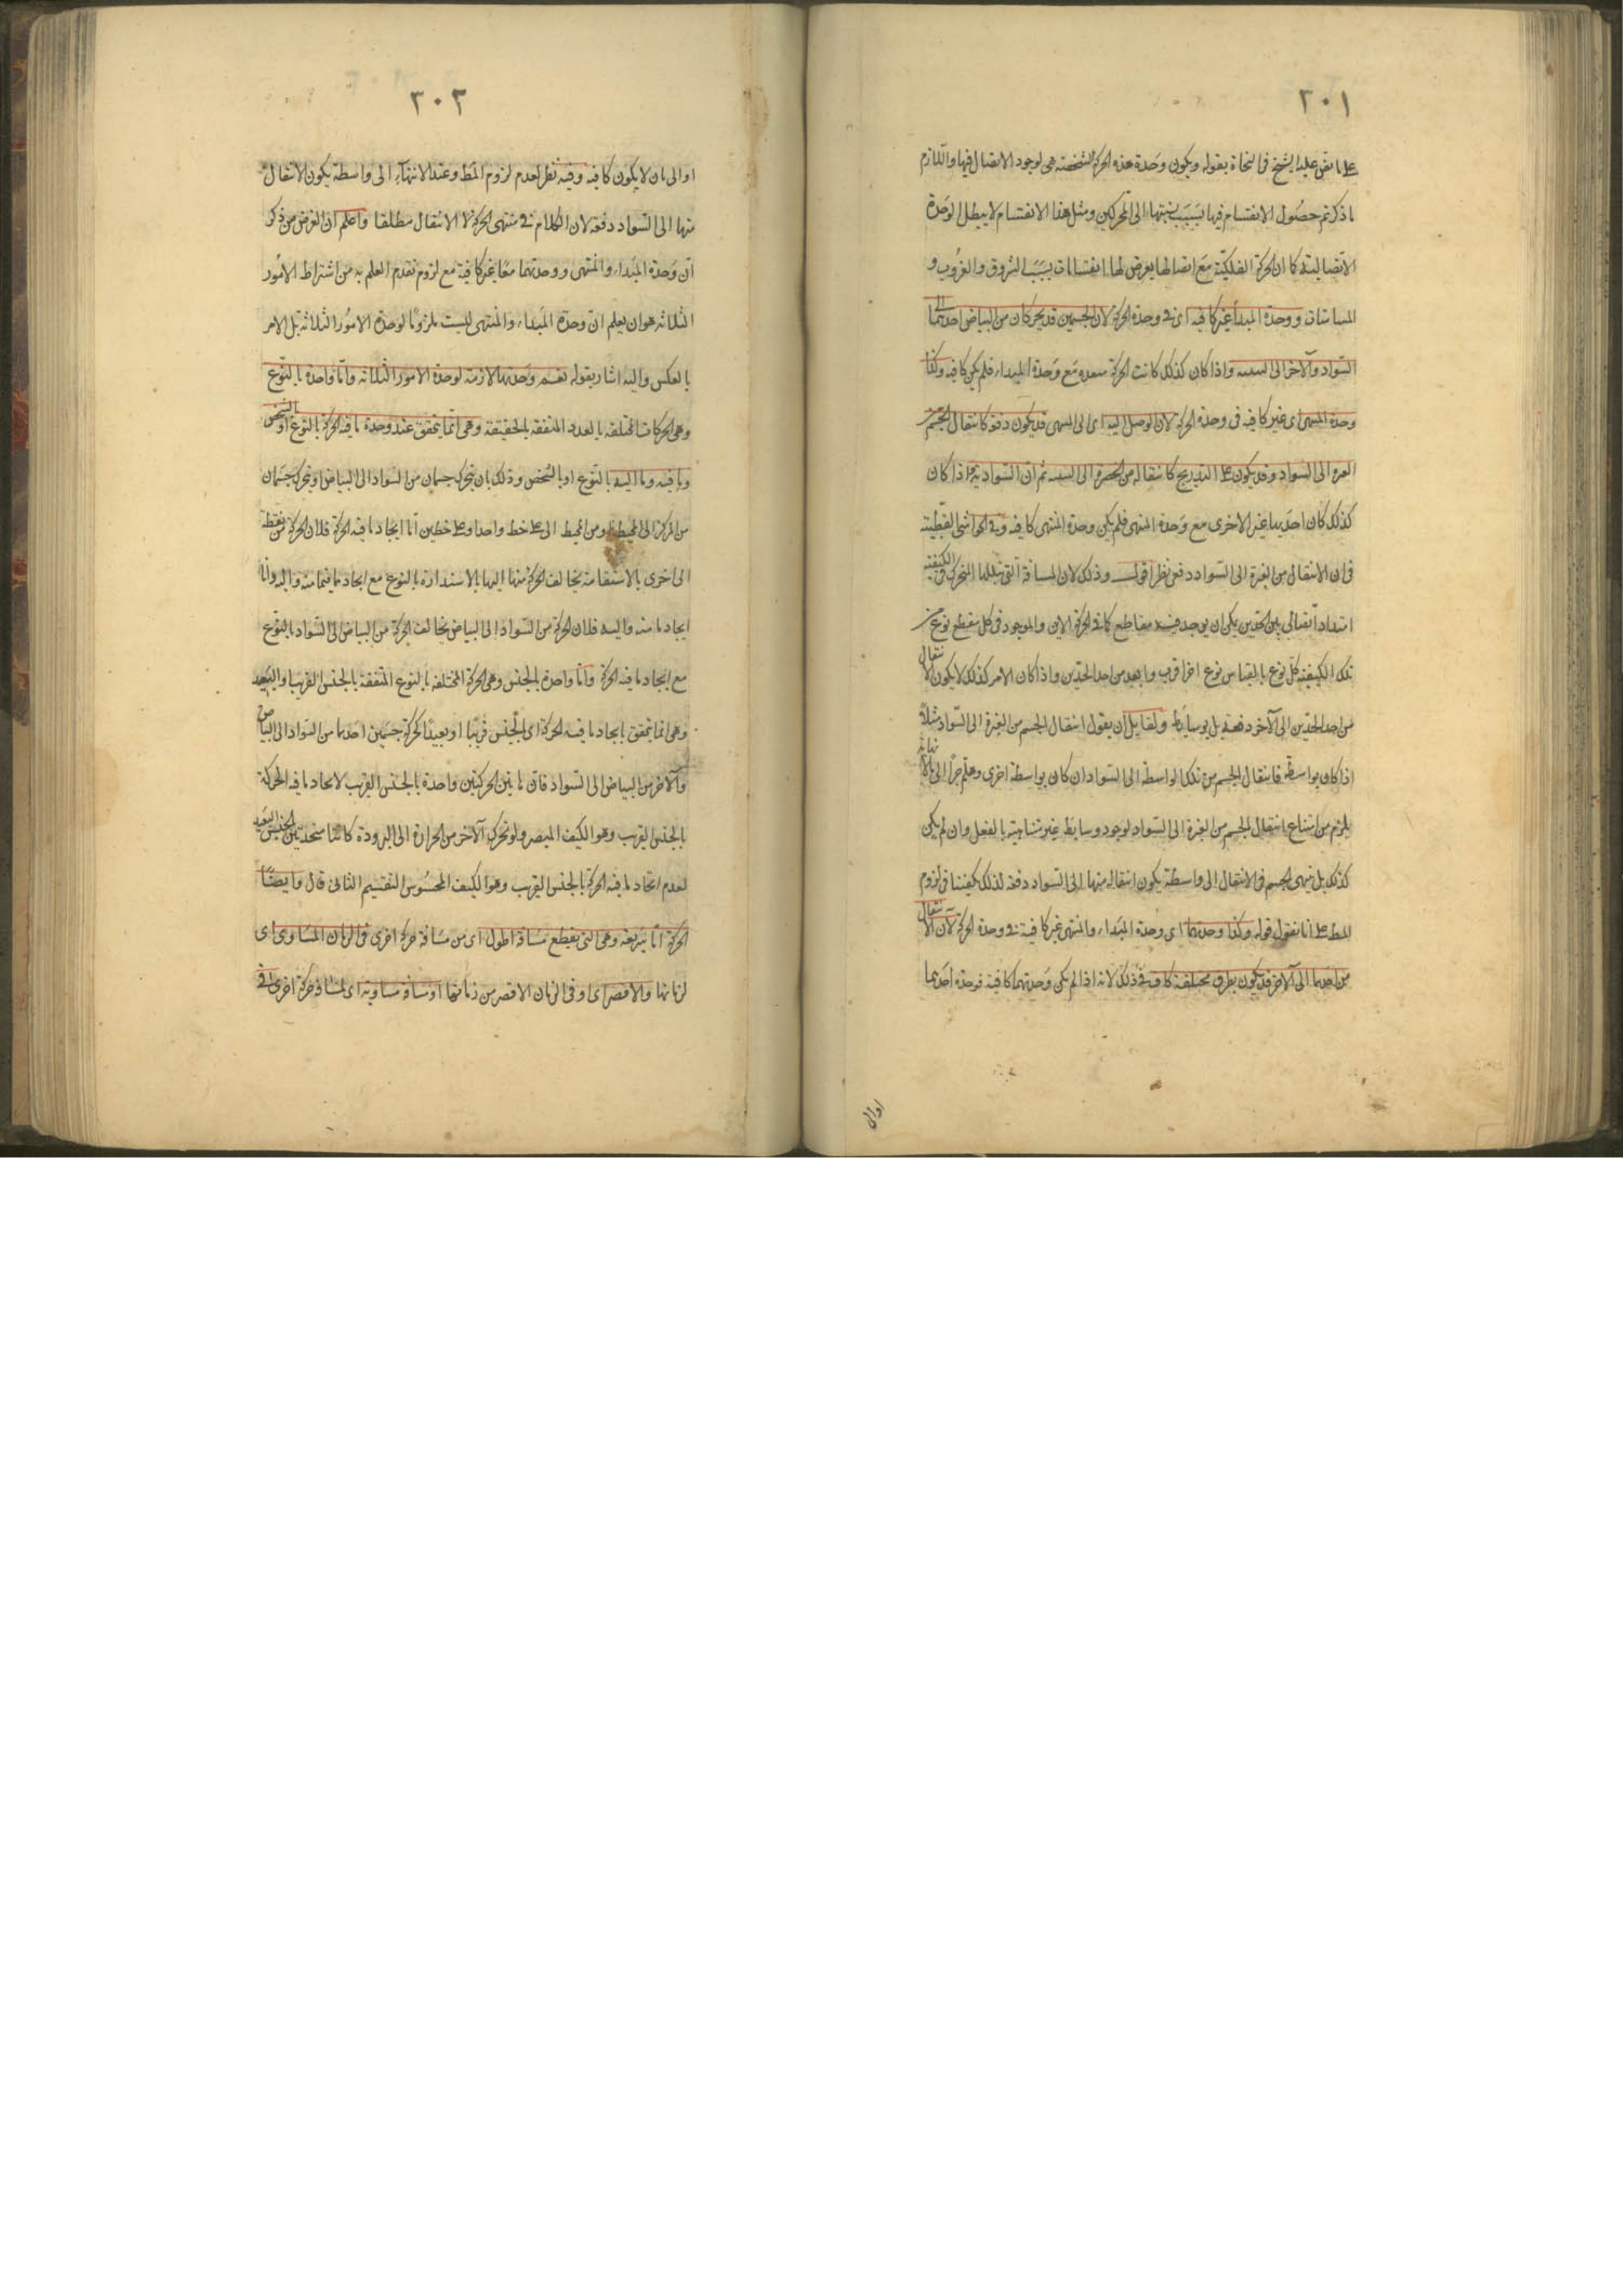 ٢٠١
على ما نص عليه الشيخ فى النجاة بقوله ويكون وحدة هذه الحركة الشخصية هى لوجود الاتصال فيها واللازم
ما ذكرتم حصول الانقسام فيها بسبب نسبتها الى المحركين ومثل هذا الانقسام لا يبطل الوحدة
الاتصالية كما ان الحركة الفلكية مع اتصالها يعرض لها انقسامات بسبب الشروق والغروب و
المسامتات ووحدة المبدأ غير كافيه اى فى وحدة الحركة لان الجسمين قد يتحركان من البياض احدهما الى
السواد والآخر الى واذا كان كذلك كانت الحركة متعددة مع وحدة المبداء فلم يكن كافيه وكذا
وحدة المنتهى اى غير كافيه فى وحدة الحركة لان الوصل اليه اى الى المنتهى قد يكون دفعة كانتقال الجسم من
الغبرة الى السواد وقد يكون على التدريج كانتقاله من الخضرة الى ثم ان السوادية اذا كان
كذلك كان احديهما غير الاخرى مع وحدة المنتهى فلم يكن وحدة المنتهى كافيه وفى الحواشى القطبية
فى ان الانتقال من الغبرة الى السواد دفعى نظر اقول وذلك لان المسافة التى يتخللها المتحرك فى الكيفية
امتداد اتصالى بين الحدين يمكن ان يوجد فيه مقاطع كما فى الحركة الاين والموجود فى كل مقطع نوع من
تلك الكيفية كل نوع بالقياس نوع اخر اقرب وابعد من احد الحدين واذا كان الامر كذلك لا يكون الانتقال
من احد الحدين الى الآخر دفعة بل بوسايط ولقايل ان يقول انتقال الجسم من الغبرة الى السواد مثلا
اذا كان بواسطة فانتقال الجسم من تلك الواسطة الى السواد ان كان بواسطة اخرى وهلم جرا الى ما لا نهاية
يلزم من امتناع انتقال الجسم من الغبرة الى السواد لوجود وسايط غير متناهية بالفعل وان لم يكن
كذلك بل ينتهى الجسم فى الانتقال الى واسطة يكون انتقاله منها الى السواد دفعة لذلك يكفينا فى لزوم
المط على انا نقول قوله وكذا وحدتهما اى وحدة المبداء والمنتهى غير كافية فى وحدة الحركة لان الانتقال
من احدهما الى الآخر قد يكون بطرق مختلفة كاف فى ذلك لانه اذا لم يكن وحدتهما كافية فوحدة احدهما
اولى
٢٠٢
اولى بان لا يكون كافية وفيه نظر لعدم لزوم المط وعند الانتهاء الى واسطة يكون الانتقال
منها الى السواد دفعة لان الكلام فى منتهى الحركة لا الانتقال مطلقا واعلم ان الغرض من ذكر
ان وحدة المبداء والمنتهى ووحدتهما معا غير كافية مع لزوم تقدم العلم به من اشتراط الامور
الثلاثة هو ان يعلم ان وحدة المبداء والمنتهى ليست ملزوما لوحدة الامور الثلاثة بل الامر
بالعكس واليه اشار بقوله نعم وحدتهما لازمة لوحدة الامور الثلاثة واما واحدة بالنوع
وهى الحركات المختلفة بالعدد المتفقة بالحقيقة وهى انما يتحقق عند وحدة ما فيه الحركة بالنوع او بالشخص
وما فيه وما اليه بالنوع او بالشخص وذلك بان يتحرك جسمان من السواد الى البياض او يتحرك جسمان
من المركز الى المحيط ومن المحيط الى على خط واحد او على خطين اما ايجاد ما فيه الحركة فلان الحركة من نقطة
الى اخرى بالاستقامة يخالف الحركة منها اليها بالاستدارة بالنوع مع ايجاد ما فيما منه واليه واما
ايجاد ما منه واليه فلان الحركة من السواد الى البياض يخالف الحركة من البياض الى السواد بالنوع
مع ايجاد ما فيه الحركة واما واحدة بالجنس وهى الحركة المختلفة بالنوع المتفقة بالجنس القريب او البعيد
وهى انما يتحقق بايجاد ما فيه الحركة اى الجنس قريبا او بعيدا كحركة جسمين احدهما من السواد الى البياض
والآخر من البياض الى السواد فان ما بين الحركتين واحدة بالجنس القريب لاتحاد ما فيه الحركة
بالجنس القريب وهو الكيف المبصر ولو تحرك الآخر من الحرارة الى البرودة كانتا متحدتين بالجنس البعيد
لعدم اتحاد ما فيه الحركة بالجنس القريب وهو الكيف المحسوس التقسيم الثانى قال وايضا
الحركة اما سريعة وهى التى يقطع مسافة اطول اى من مسافة حركة اخرى فى الزمان المساوى اى
لزمانها والاقصر اى او فى الزمان الاقصر من زمانها او مسافة مساوية اى لمسافة حركة اخرى فى